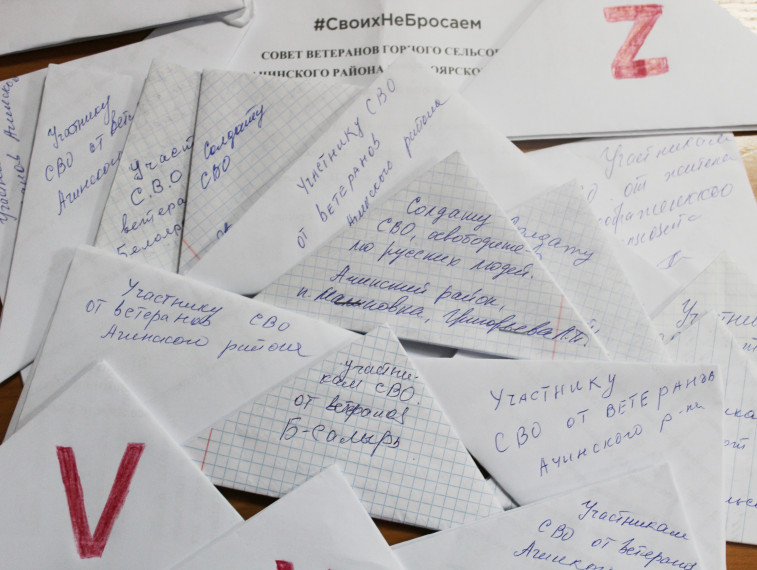 #СвоихНеБросаем
СОВЕТ ВЕТЕРАНОВ ГОРНОГО СЕЛЬСО
АЧИНСКОГО РАЙОНА
Z
Участнику
СВО от вете
Ачинского
Участ
С.В.О
ветера
Белояр
Солдату
СВО
Участнику СВО
от ветеранов
Ачинского района
Участникам
от жителей
Солдату
СВО, освободите-
лю русских людей.
Ачинский район,
п. Малиновка, Григорьева Л.П.
Солдату
Участнику СВО
от ветеранов
Ачинского района
Участни-
кам СВО
от ветеранов
Б-Салырь
Участнику
СВО от ветеранов
Ачинского р-на
V
Участникам
СВО от ветерана